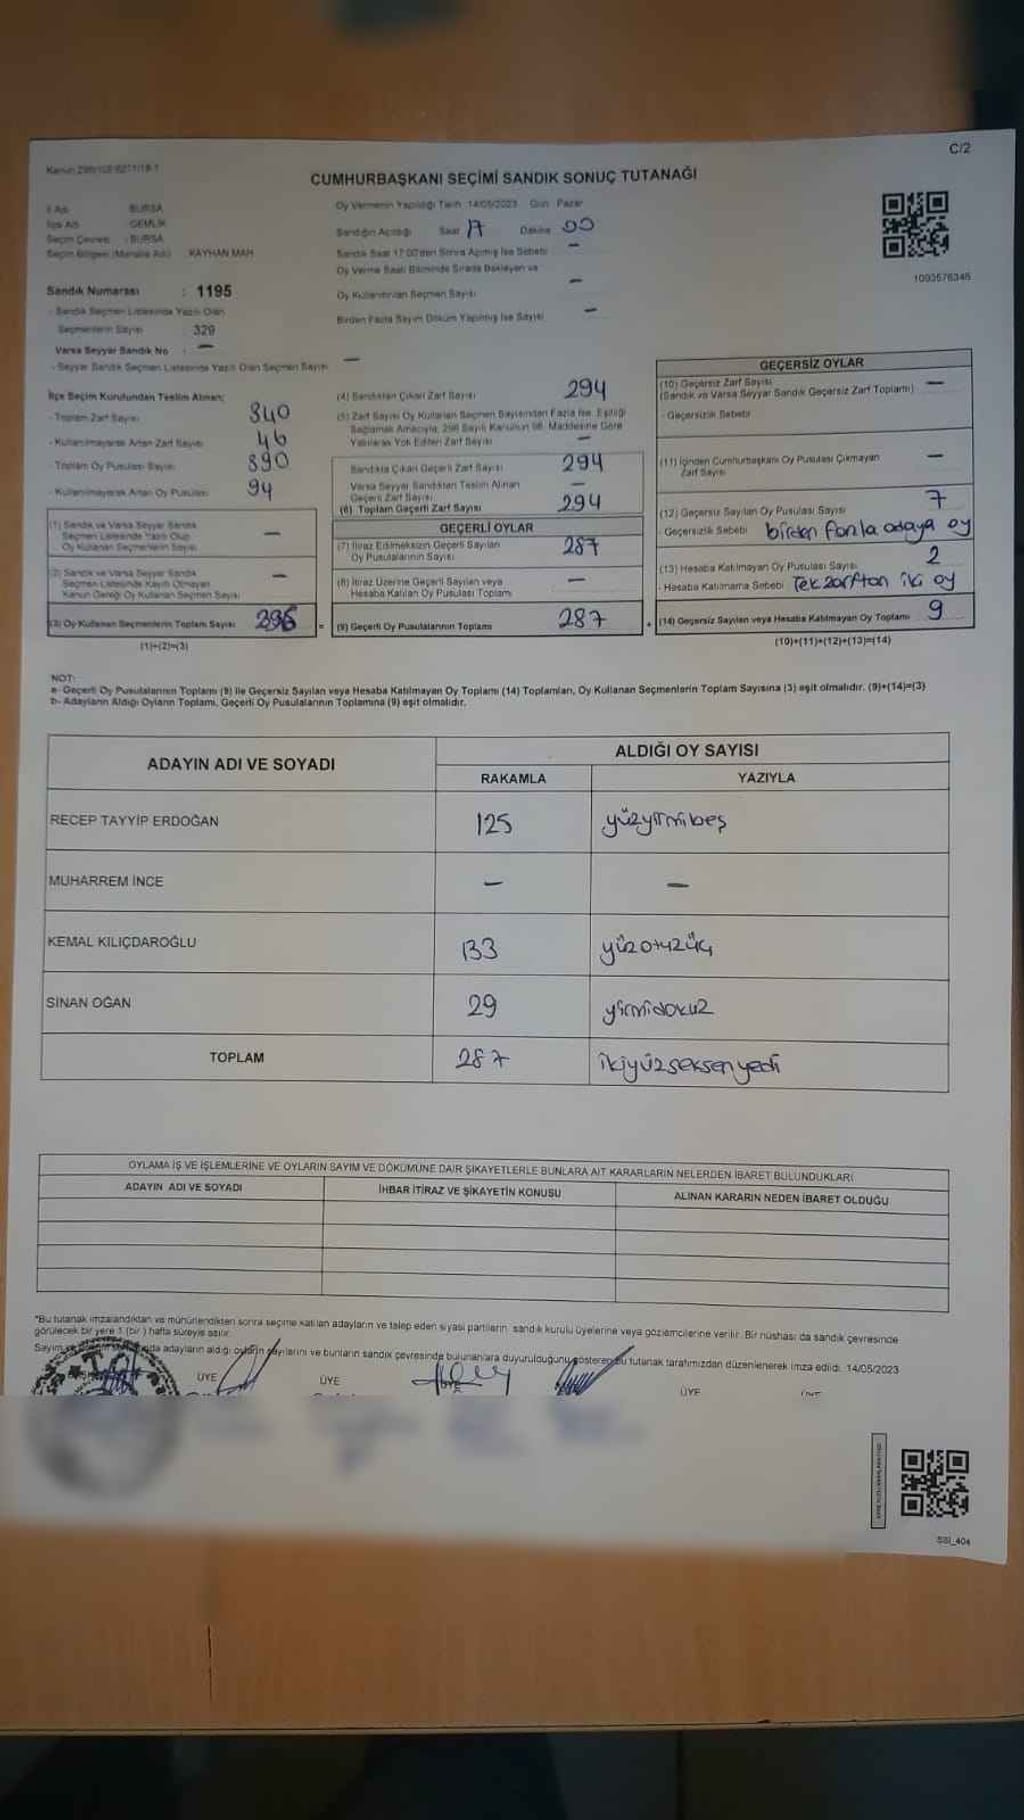 C/2
CUMHURBAŞKANI SEÇİMİ SANDIK SONUÇ TUTANAĞI
İl Adı : BURSA
İlçe Adı : GEMLİK
Seçim Çevresi : BURSA
Seçim Bölgesi (Mahalle Adı) : KAYHAN MAH
Sandık Numarası : 1195
- Sandık Seçmen Listesinde Yazılı Olan
Seçmenlerin Sayısı 329
Varsa Seyyar Sandık No : —
- Seyyar Sandık Seçmen Listesinde Yazılı Olan Seçmen Sayısı —
Oy Vermenin Yapıldığı Tarih :14/05/2023 Gün : Pazar
Sandığın Açıldığı Saat 17 Dakika 00
Sandık Saat 17:00'den Sonra Açılmış İse Sebebi —
Oy Verme Saati Bitiminde Sırada Bekleyen ve
Oy Kullandırılan Seçmen Sayısı —
Birden Fazla Sayım Döküm Yapılmış İse Sayısı —
1093576345
İlçe Seçim Kurulundan Teslim Alınan;
- Toplam Zarf Sayısı 340
- Kullanılmayarak Artan Zarf Sayısı 46
- Toplam Oy Pusulası Sayısı 390
- Kullanılmayarak Artan Oy Pusulası 94
(1) Sandık ve Varsa Seyyar Sandık
Seçmen Listesinde Yazılı Olup
Oy Kullanan Seçmenlerin Sayısı —
(2) Sandık ve Varsa Seyyar Sandık
Seçmen Listesinde Kayıtlı Olmayan
Kanun Gereği Oy Kullanan Seçmen Sayısı —
(3) Oy Kullanan Seçmenlerin Toplam Sayısı 296
(1)+(2)=(3)
(4) Sandıktan Çıkan Zarf Sayısı 294
(5) Zarf Sayısı Oy Kullanan Seçmen Sayısından Fazla İse, Eşitliği
Sağlamak Amacıyla, 298 Sayılı Kanunun 98. Maddesine Göre
Yakılarak Yok Edilen Zarf Sayısı —
Sandıkta Çıkan Geçerli Zarf Sayısı 294
Varsa Seyyar Sandıktan Teslim Alınan
Geçerli Zarf Sayısı —
(6) Toplam Geçerli Zarf Sayısı 294
GEÇERLİ OYLAR
(7) İtiraz Edilmeksizin Geçerli Sayılan
Oy Pusulalarının Sayısı 287
(8) İtiraz Üzerine Geçerli Sayılan veya
Hesaba Katılan Oy Pusulası Toplamı —
= (9) Geçerli Oy Pusulalarının Toplamı 287
GEÇERSİZ OYLAR
(10) Geçersiz Zarf Sayısı
(Sandık ve Varsa Seyyar Sandık Geçersiz Zarf Toplamı) —
- Geçersizlik Sebebi
(11) İçinden Cumhurbaşkanı Oy Pusulası Çıkmayan
Zarf Sayısı —
(12) Geçersiz Sayılan Oy Pusulası Sayısı 7
- Geçersizlik Sebebi birden fazla adaya oy
(13) Hesaba Katılmayan Oy Pusulası Sayısı 2
- Hesaba Katılmama Sebebi Tek zarftan iki oy
+ (14) Geçersiz Sayılan veya Hesaba Katılmayan Oy Toplamı 9
(10)+(11)+(12)+(13)=(14)
NOT:
a- Geçerli Oy Pusulalarının Toplamı (9) ile Geçersiz Sayılan veya Hesaba Katılmayan Oy Toplamı (14) Toplamları, Oy Kullanan Seçmenlerin Toplam Sayısına (3) eşit olmalıdır. (9)+(14)=(3)
b- Adayların Aldığı Oyların Toplamı, Geçerli Oy Pusulalarının Toplamına (9) eşit olmalıdır.
ADAYIN ADI VE SOYADI
ALDIĞI OY SAYISI
RAKAMLA YAZIYLA
RECEP TAYYİP ERDOĞAN 125 yüzyirmibeş
MUHARREM İNCE — —
KEMAL KILIÇDAROĞLU 133 yüzotuzüç
SİNAN OĞAN 29 yirmidokuz
TOPLAM 287 ikiyüzseksenyedi
OYLAMA İŞ VE İŞLEMLERİNE VE OYLARIN SAYIM VE DÖKÜMÜNE DAİR ŞİKAYETLERLE BUNLARA AİT KARARLARIN NELERDEN İBARET BULUNDUKLARI
ADAYIN ADI VE SOYADI İHBAR İTİRAZ VE ŞİKAYETİN KONUSU ALINAN KARARIN NEDEN İBARET OLDUĞU
*Bu tutanak imzalandıktan ve mühürlendikten sonra seçime katılan adayların ve talep eden siyasi partilerin sandık kurulu üyelerine veya gözlemcilerine verilir. Bir nüshası da sandık çevresinde
görülecek bir yere 1 (bir ) hafta süreyle asılır.
adayların aldığı oyların sayılarını ve bunların sandık çevresinde bulunanlara duyurulduğunu gösteren bu tutanak tarafımızdan düzenlenerek imza edildi. 14/05/2023
ÜYE ÜYE ÜYE ÜYE
SSI_404